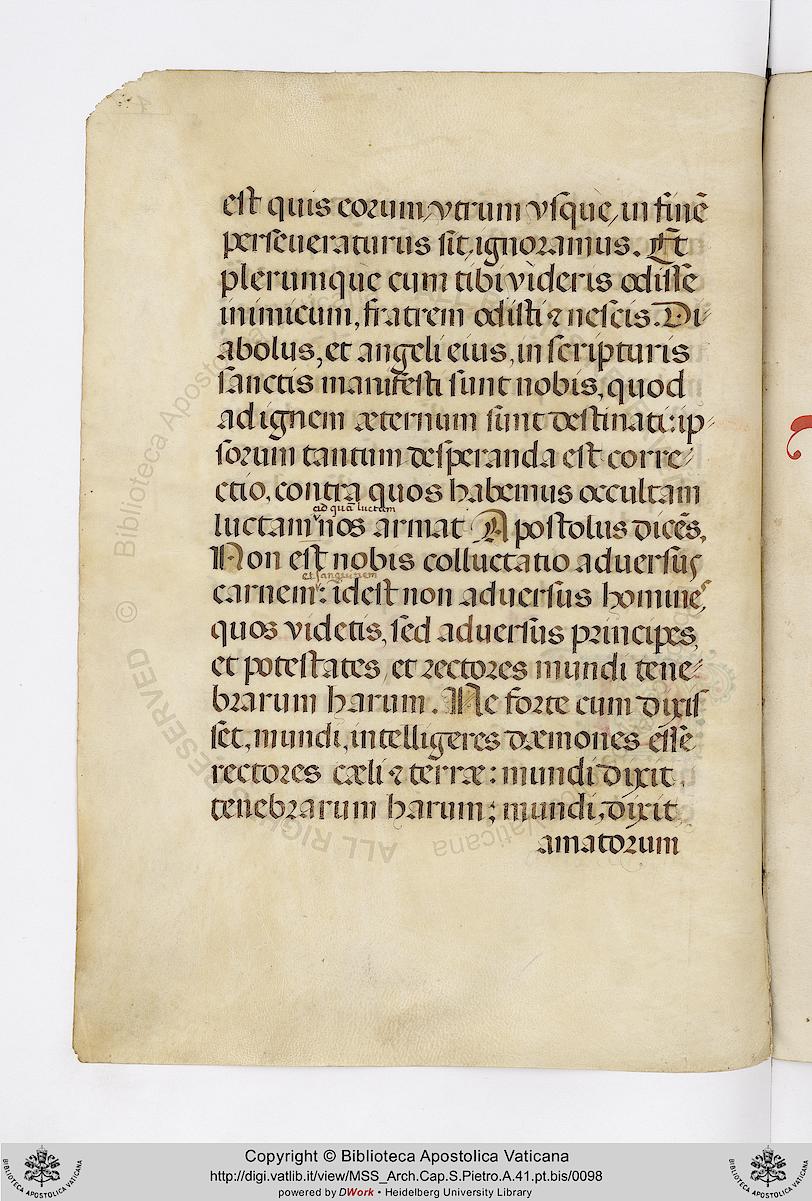 est quis eorum, vtrum vsque, in finē
perseueraturus sit, ignoramus. Et
plerumque cum tibi videris odisse
inimicum, fratrem odisti ⁊ nescis. Di⸗
abolus, et angeli eius, in scripturis
sanctis manifesti sunt nobis, quod
ad ignem æternum sunt destinati: ip⸗
sorum tantum desperanda est corre⸗
ctio, contra quos habemus occultam
ad quā luctam
luctam nos armat Apostolus dicēs,
Non est nobis colluctatio aduersus
et sanguinem
carnem: idest non aduersus homines,
quos videtis, sed aduersus principes,
et potestates, et rectores mundi tene⸗
brarum harum. Ne forte cum dixis
set, mundi, intelligeres dæmones esse
rectores cæli ⁊ terræ: mundi dixit,
tenebrarum harum; mundi, dixit
amatorum
Copyright © Biblioteca Apostolica Vaticana
http://digi.vatlib.it/view/MSS_Arch.Cap.S.Pietro.A.41.pt.bis/0098
powered by DWork • Heidelberg University Library
BIBLIOTECA APOSTOLICA VATICANA
BIBLIOTECA APOSTOLICA VATICANA
© Biblioteca Apostolica Vaticana ALL RIGHTS RESERVED